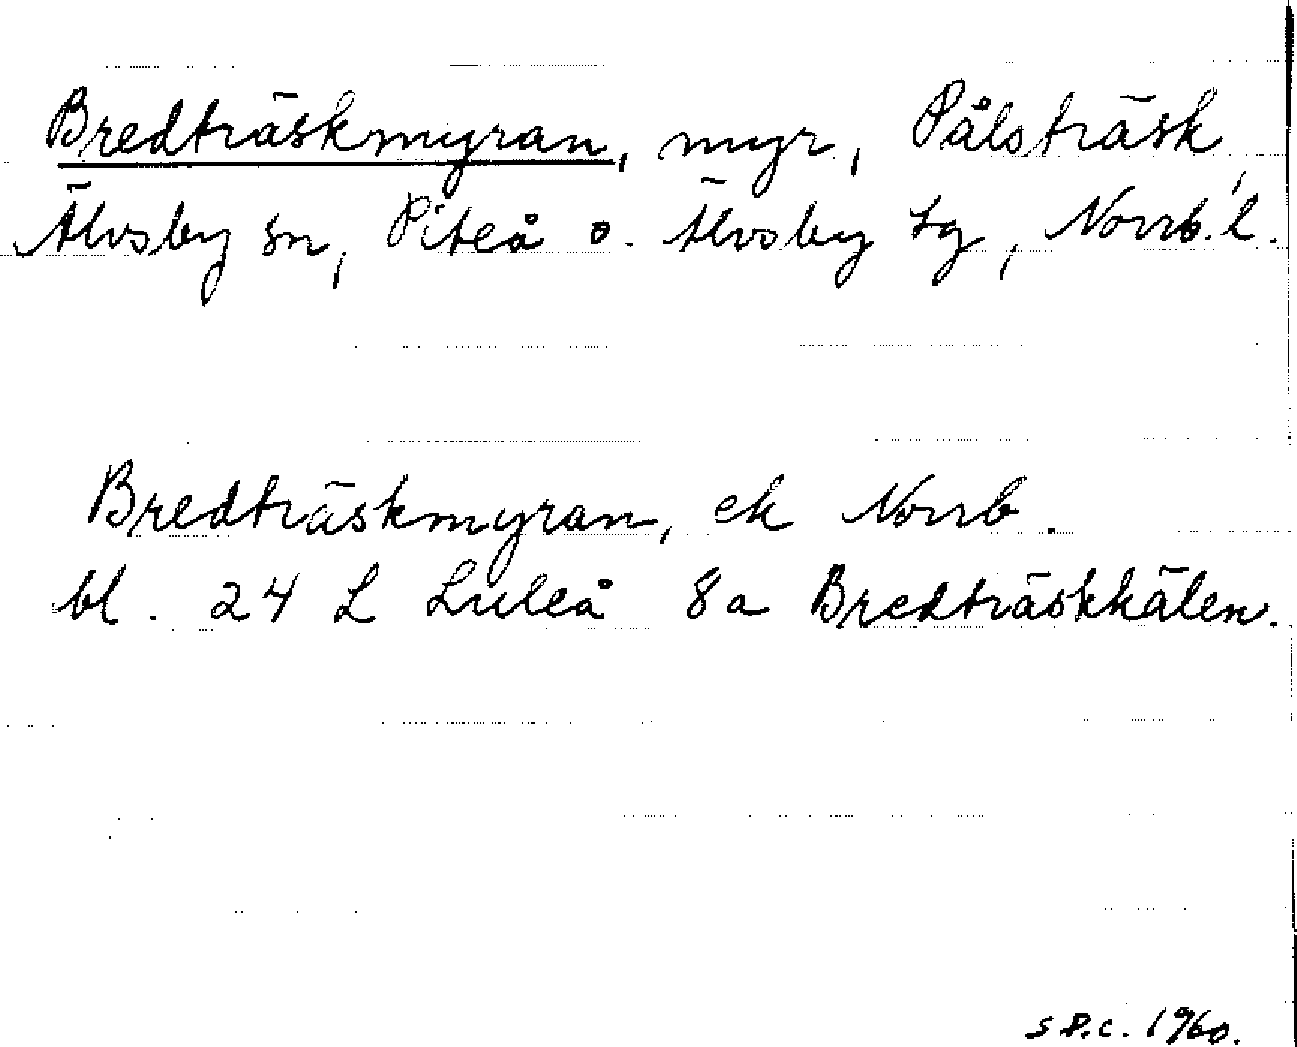 Bredträskmyran, myr, Pålsträsk,
Älvsby sn, Piteå o. Älvsby tg, Norrb. l.
Bredträskmyran, ek Norrb.
bl. 24 L Luleå 8a Bredträskkälen.
S P.C. 1960.